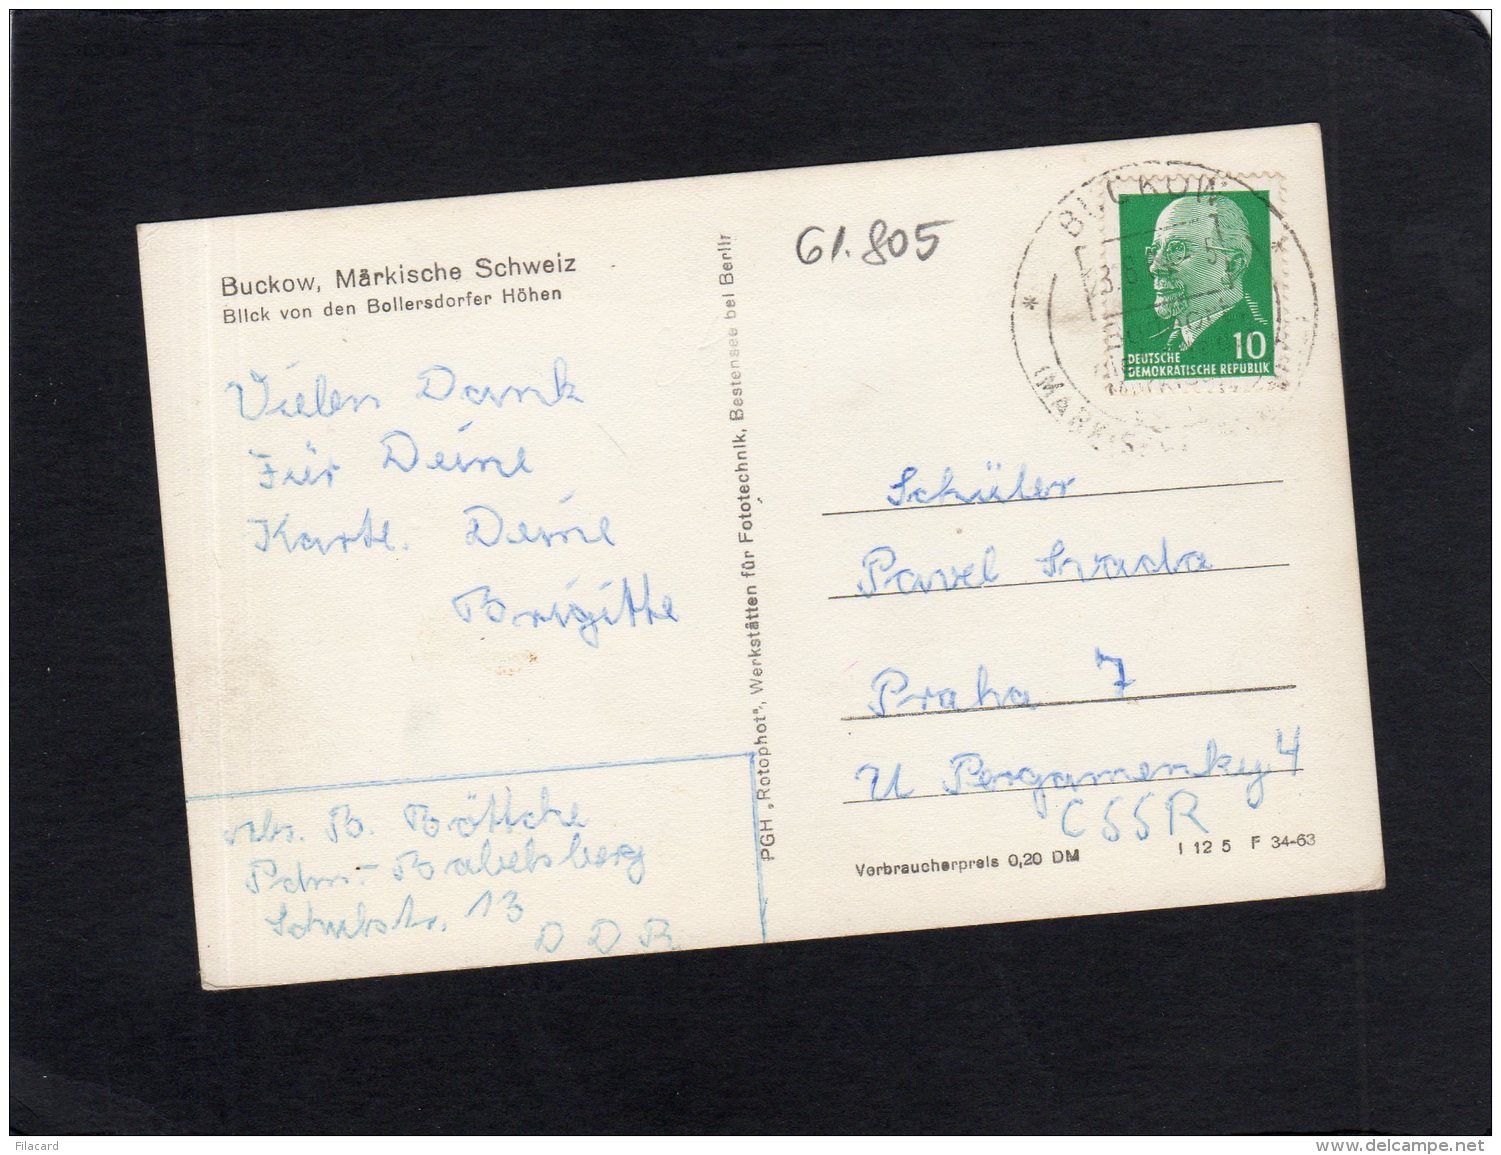 Buckow, Märkische Schweiz
Blick von den Bollersdorfer Höhen
Vielen Dank
Für Deine
Karte. Deine
Brigitte
Abs. B. Böttche
Pdm.- Babelsberg
Schubstr. 13
D D R
PGH „Rotophot“, Werkstätten für Fototechnik, Bestensee bei Berlin
61.805
BUCKOW
DEUTSCHE
DEMOKRATISCHE REPUBLIK
10
Schüler
Pavel Svada
Praha 7
U Pergamenky 4
CSSR
Verbraucherpreis 0,20 DM
I 12 5 F 34-63
Filacard
www.delcampe.net